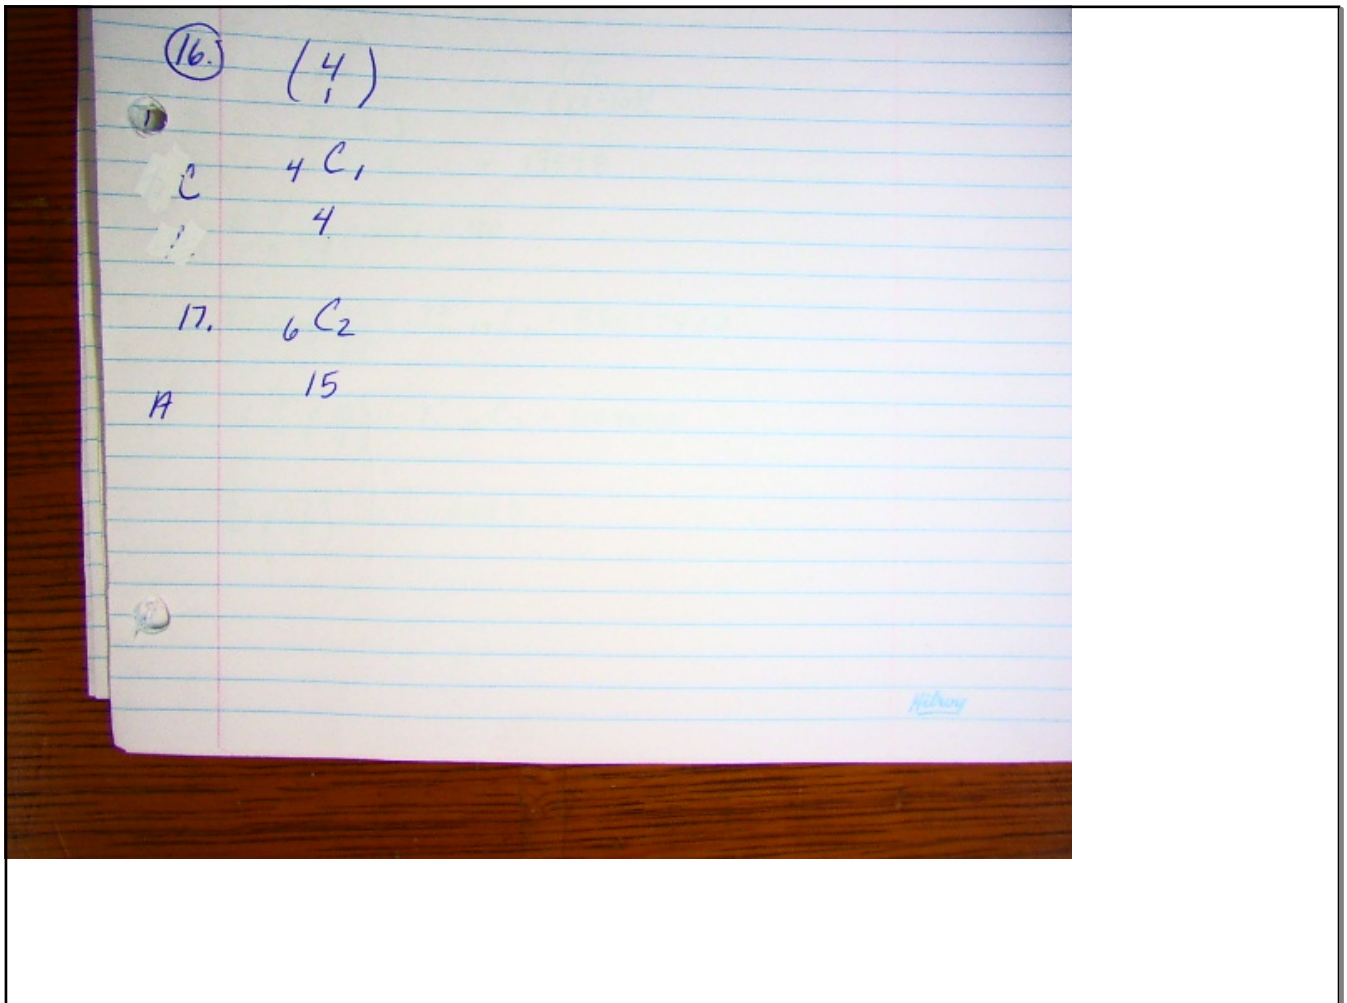 16. (4
1)
C ₄C₁
4
17. ₆C₂
15
A
Hilroy